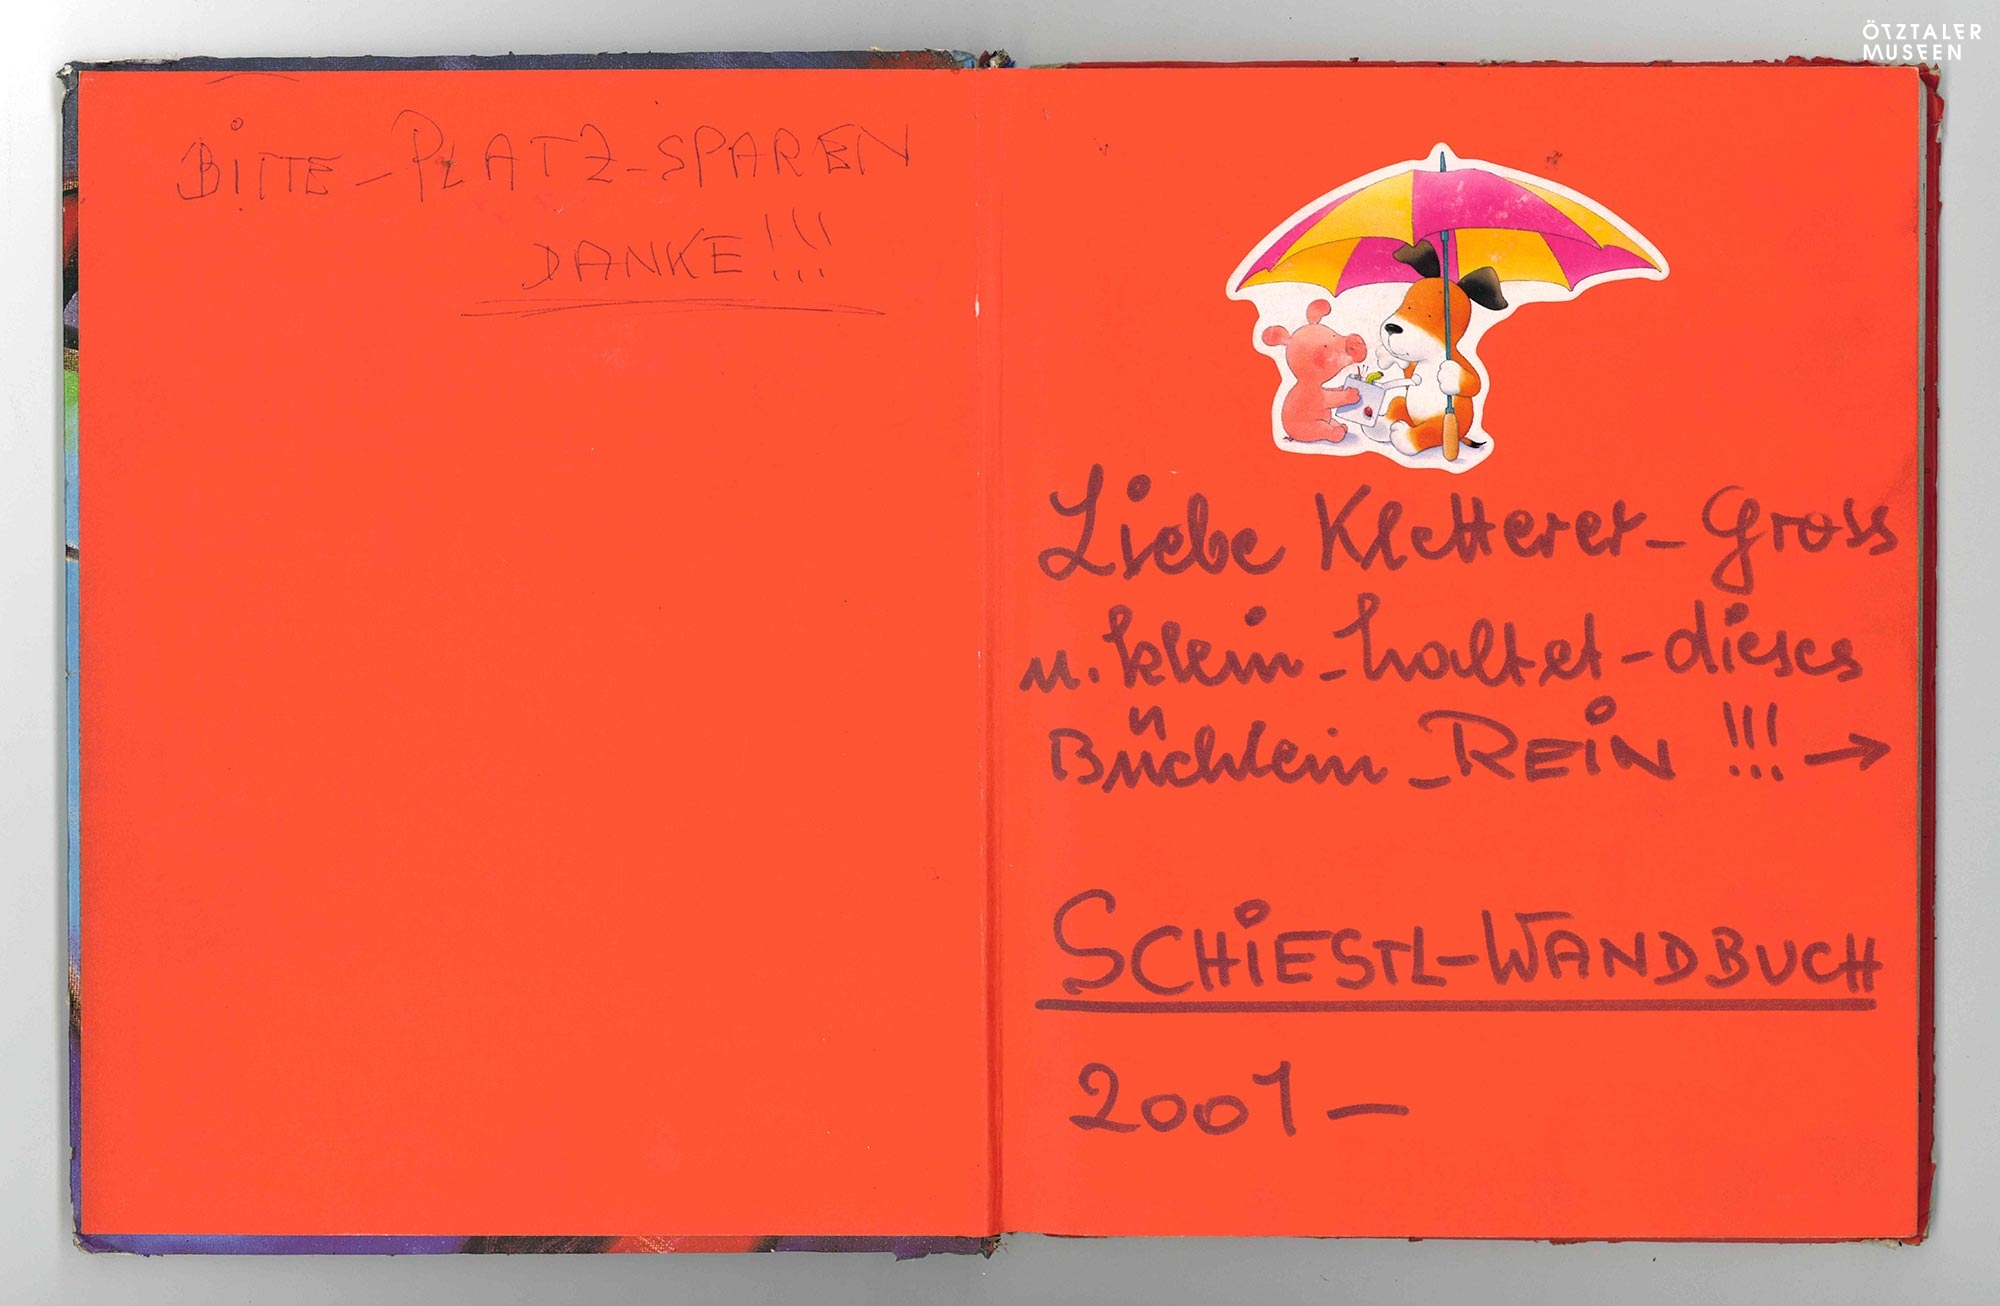 ÖTZTALER
MUSEEN
BITTE - PLATZ - SPAREN
DANKE!!!
Liebe Kletterer - Gross
u. klein - haltet - dieses
Büchlein - REIN !!! →
SCHIESTL-WANDBUCH
2001 -